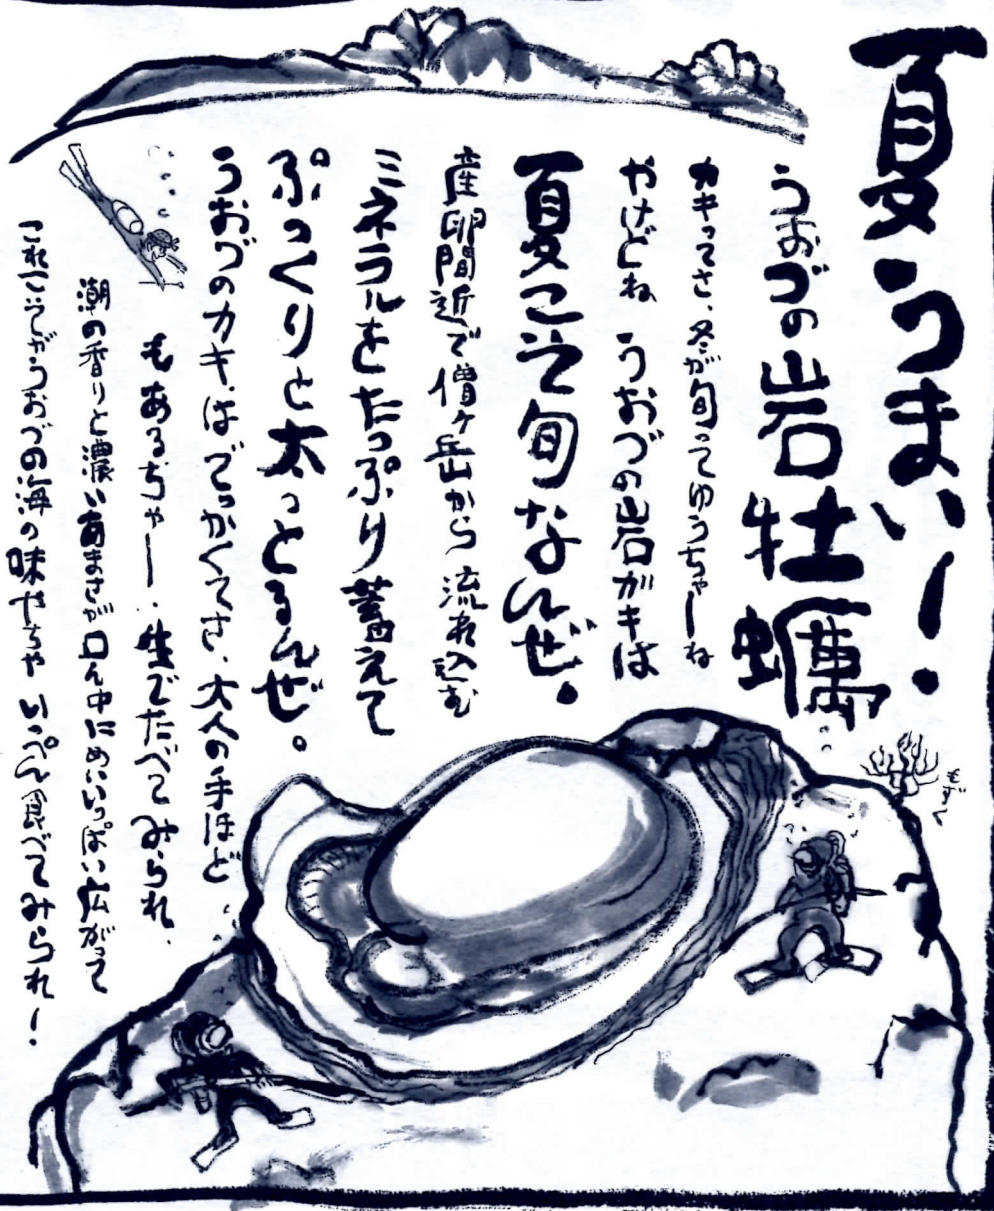 夏うまい！
うおづの岩牡蠣
カキってさ、冬が旬ってゆうちゃーね
やけどね うおづの岩ガキは
夏こそ旬なんぜ。
産卵間近で僧ヶ岳から流れ込む
ミネラルをたっぷり蓄えて
ぷっくりと太っとるんぜ。
うおづのカキはでっかくてさ、大人の手ほど
もあるちゃー。生でたべてみられ、
潮の香りと濃いあまさが口ん中にめいいっぱい広がって
これこそがうおづの海の味やちゃ いっぺん食べてみられ！
もずく